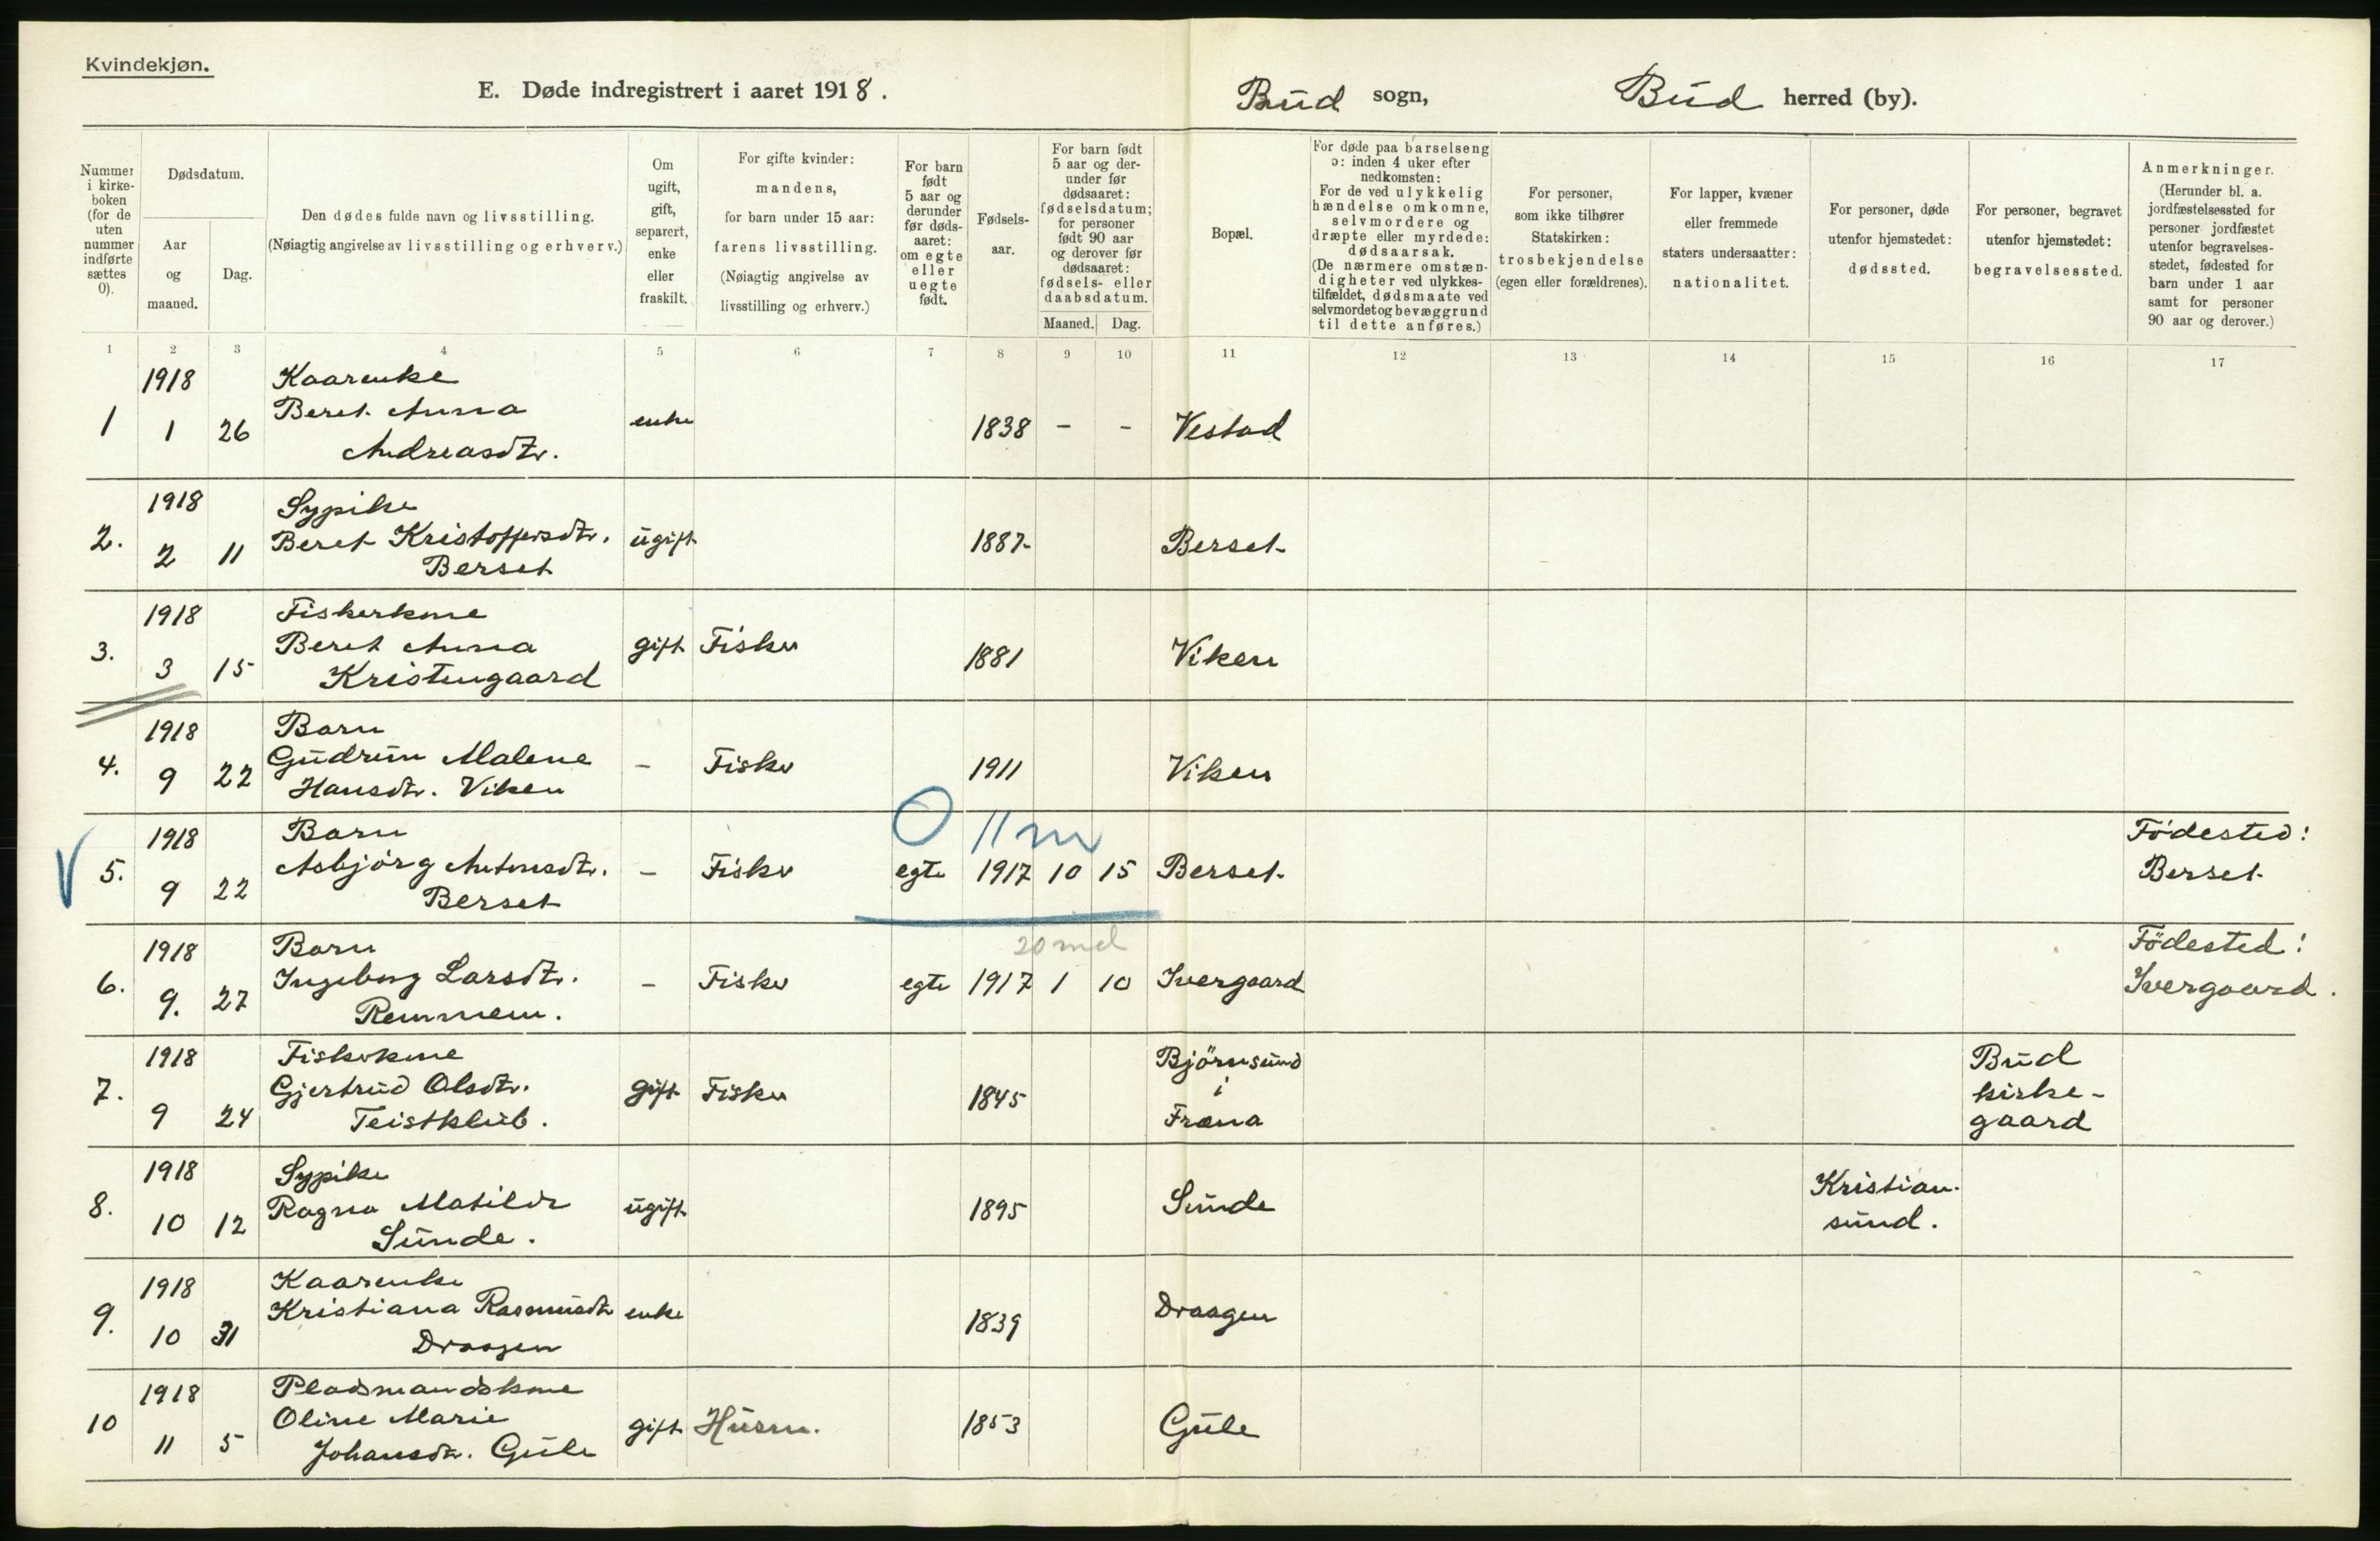 Kvindekjøn.
E. Døde indregistrert i aaret 1918.
Bud sogn,
Bud herred (by).
Nummer i kirke-boken (for de uten nummer indførte sættes 0).
Dødsdatum.
Aar og maaned.
Dag.
Den dødes fulde navn og livsstilling.
(Nøiagtig angivelse av livsstilling og erhverv.)
Om ugift, gift, separert, enke eller fraskilt.
For gifte kvinder:
mandens,
for barn under 15 aar:
farens livsstilling.
(Nøiagtig angivelse av
livsstilling og erhverv.)
For barn født 5 aar og derunder før døds-aaret: om egte eller uegte født.
Fødsels-aar.
For barn født 5 aar og der-under før dødsaaret: fødselsdatum; for personer født 90 aar og derover før dødsaaret: fødsels- eller daabsdatum.
Maaned. Dag.
Bopæl.
For døde paa barselseng
ɔ: inden 4 uker efter
nedkomsten:
For de ved ulykkelig
hændelse omkomne,
selvmordere og
dræpte eller myrdede:
dødsaarsak.
(De nærmere omstæn-
digheter ved ulykkes-
tilfældet, dødsmaate ved
selvmordet og bevæggrund
til dette anføres.)
For personer,
som ikke tilhører
Statskirken:
trosbekjendelse
(egen eller forældrenes).
For lapper, kvæner
eller fremmede
staters undersaatter:
nationalitet.
For personer, døde
utenfor hjemstedet:
dødssted.
For personer, begravet
utenfor hjemstedet:
begravelsessted.
Anmerkninger.
(Herunder bl. a.
jordfæstelsessted for
personer jordfæstet
utenfor begravelses-
stedet, fødested for
barn under 1 aar
samt for personer
90 aar og derover.)
1 2 3 4 5 6 7 8 9 10 11 12 13 14 15 16 17
1918 Kaarenke
1 1 26 Beret Anna enke 1838 - - Vestad
Andreasdtr.
1918 Sypike
2. 2 11 Beret Kristoffersdtr. ugift 1887 Berset
Berset
1918 Fiskerkone
3. 3 15 Beret Anna gift Fisker 1881 Viken
Kristengaard
1918 Barn
4. 9 22 Gudrun Malene - Fisker 1911 Viken
Hansdtr. Viken
0 11 m
1918 Barn Födested:
5. 9 22 Asbjörg Antonsdtr. - Fisker egte 1917 10 15 Berset Berset
Berset
20 md
1918 Barn Födested:
6. 9. 27 Ingeborg Larsdtr. - Fisker egte 1917 1 10 Ivergaard Ivergaard.
Remmem.
1918 Fiskerkone Björnsund Bud
7. 9 24 Gjertrud Olsdtr. gift Fisker 1845 i kirke-
Teistklub. Fræna gaard
1918 Sypike Kristian-
8. 10 12 Ragna Matilde ugift 1895 Sunde sund.
Sunde.
1918 Kaarenke
9. 10 31 Kristiana Rasmusdtr enke 1839 Draagen
Draagen
1918 Pladsmandskone
10 11 5 Oline Marie gift Husm. 1853 Gule
Johansdtr. Gule